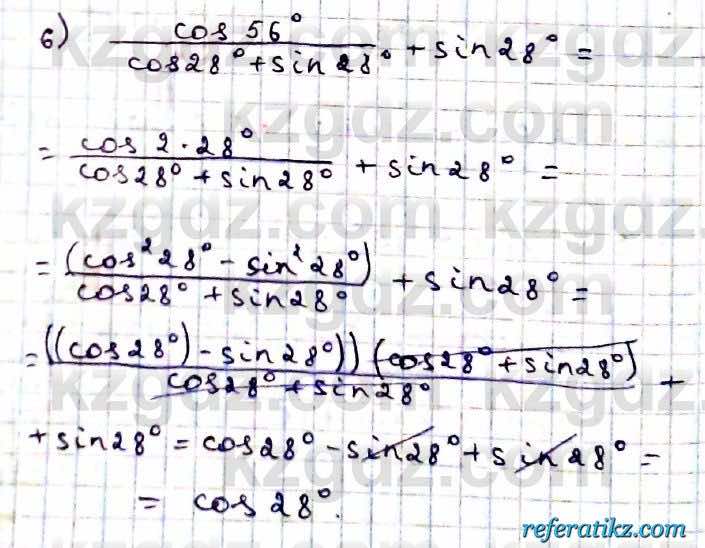 б) cos 56° / (cos28° + sin 28°) + sin28° =
= cos 2·28° / (cos28° + sin28°) + sin28° =
= (cos²28° - sin²28°) / (cos28° + sin28°) + sin28° =
= ((cos28°) - sin28°)) (cos28° + sin28°) / (cos28° + sin28°) +
+ sin28° = cos28° - sin28° + sin28° =
= cos 28°.
kzgdz.com
referatikz.com